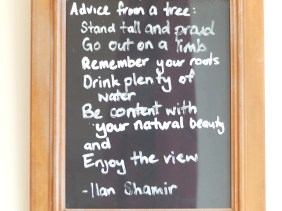 Advice from a tree:
Stand tall and proud
Go out on a limb
Remember your roots
Drink plenty of
water
Be content with
your natural beauty
and
Enjoy the view
-Ilan Shamir